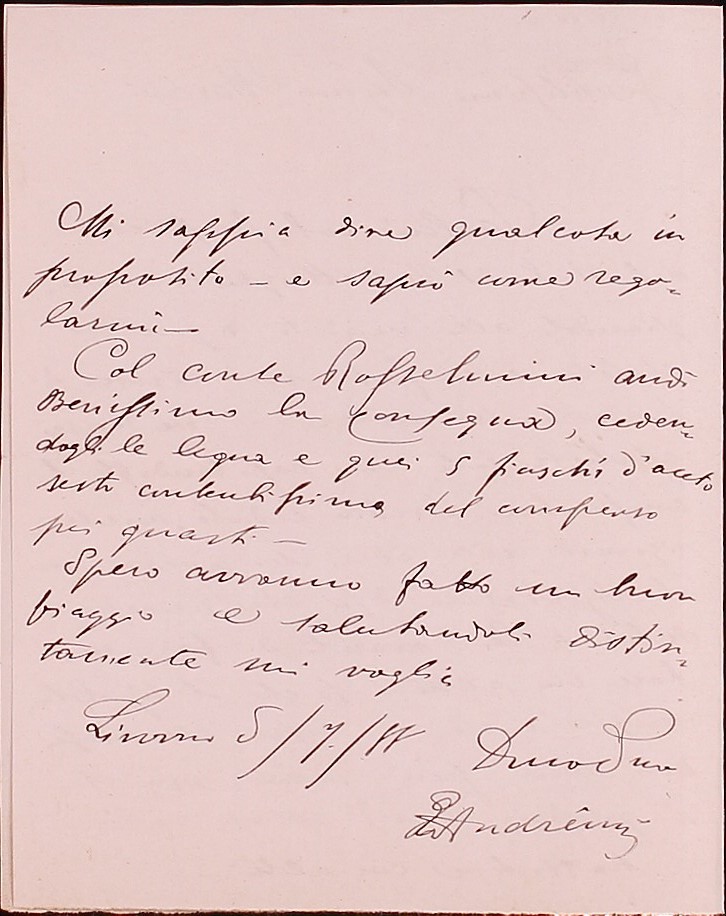 Mi sappia dire qualcosa in
proposito – e saprò come rego-
larmi –
Col conte Rosselmini andò
Benissimo la consegna, ceden-
dogli le legna e quei 5 fiaschi d'aceto
restò contentissimo del compenso
pei guasti –
Spero avranno fatto un buon
viaggio e salutandoli distin-
tamente mi voglia
Livorno 5/7/
Devo Suo
Andreini